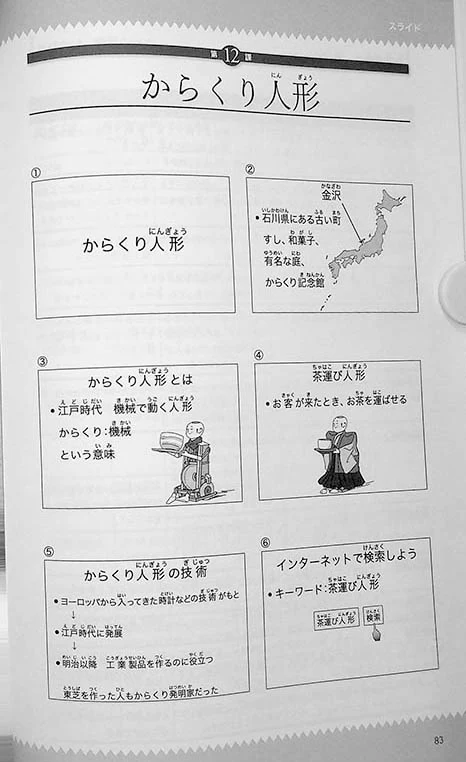 スライド
第12課
からくり人形
①
からくり人形
②
金沢
• 石川県にある古い町
すし、和菓子、
有名な庭、
からくり記念館
③
からくり人形とは
• 江戸時代 機械で動く人形
からくり:機械
という意味
④
茶運び人形
• お客が来たとき、お茶を運ばせる
⑤
からくり人形の技術
• ヨーロッパから入ってきた時計などの技術がもと
↓
• 江戸時代に発展
↓
• 明治以降 工業製品を作るのに役立つ
東芝を作った人もからくり発明家だった
⑥
インターネットで検索しよう
• キーワード:茶運び人形
茶運び人形 検索
83